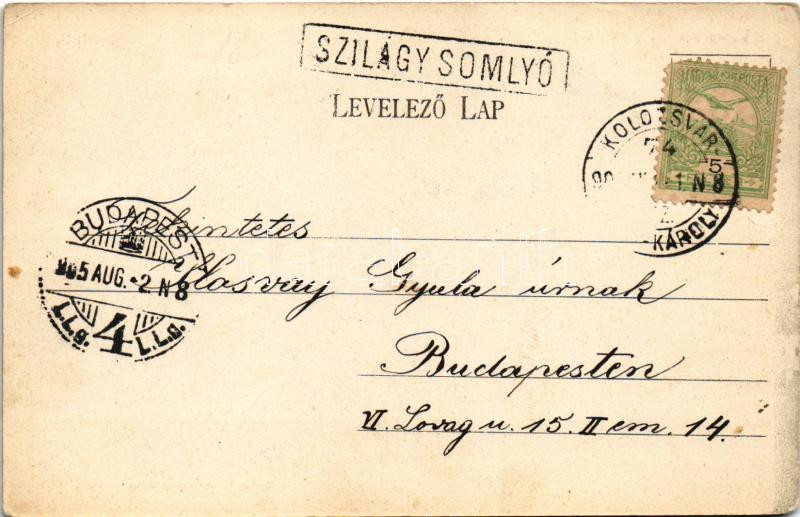 SZILÁGY SOMLYÓ
LEVELEZŐ LAP
MAGYAR KIR. POSTA
5
KOLOZSVÁR-
74
90 -1 N 8
-KÁROLY
BUDAPEST
905 AUG. -2 N 8
L.L.g. 4 L.L.g.
Tekintetes
Vasvay Gyula úrnak
Budapesten
VI. Lovag u. 15. II em. 14.